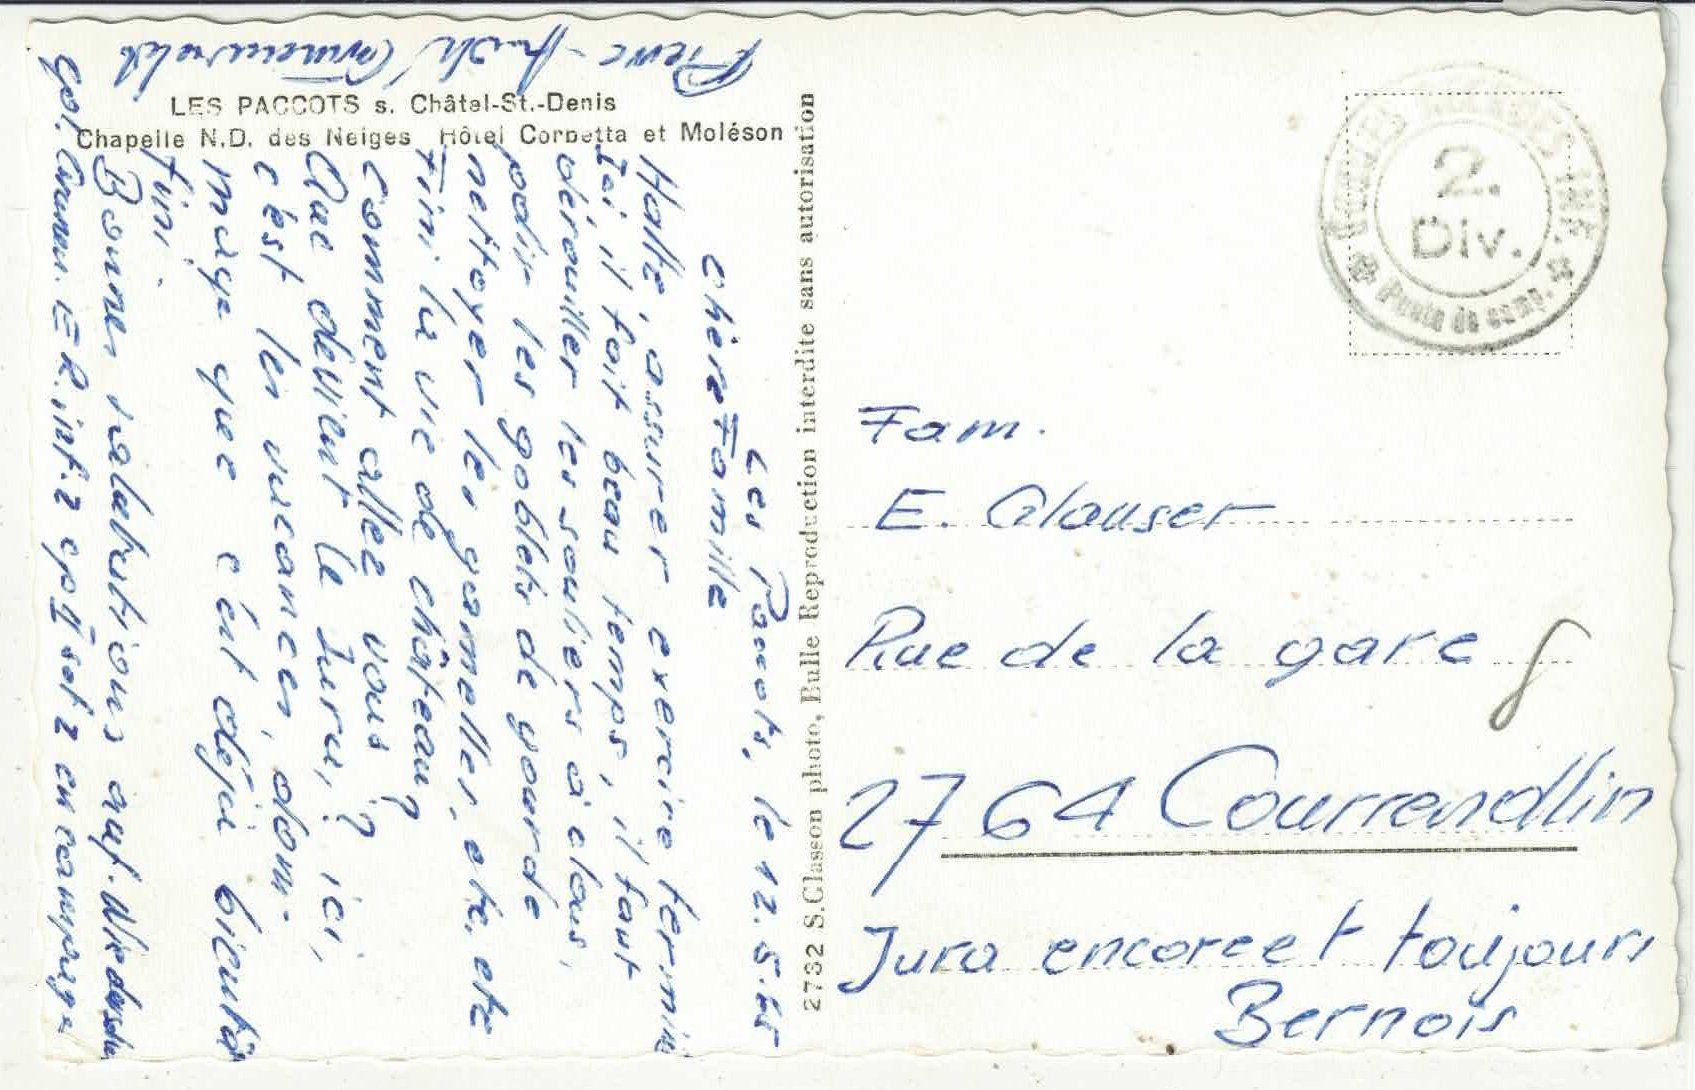 LES PACCOTS s. Châtel-St.-Denis
Chapelle N.D. des Neiges Hôtel Corbetta et Moléson
Les Paccots, le 12.5.65
chère Famille
Halte, assurer exercice terminé
Ici, il fait beau temps, il faut
dérouiller les souliers à clous,
polir les goblets de gourde
nettoyer les gamelles, etc. etc
Fini la vie de château?
comment allez vous?
Que devient le Jura,? ici,
c'est les vacances, dom-
mage que c'est déjà bientôt
fini.
Bonnes salutations auf. Wiedersehn
Cpl. E R. inf. 2 cp II sct 2 en campagne
Pierre-
2732 S. Glasson photo, Bulle Reproduction interdite sans autorisation
INF.
2.
Div.
Poste de camp.
Fam.
E. Glauser
Rue de la gare
2764 Courrendlin
Jura encore et toujours
Bernois